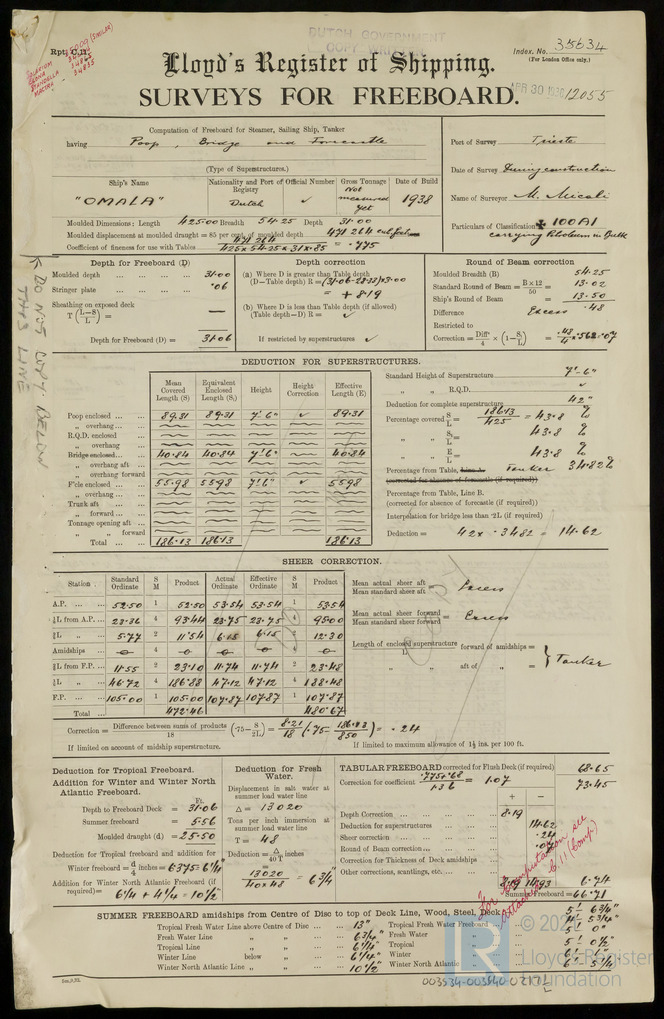 DUTCH GOVERNMENT
COPY WRITTEN
Rpt. C.11.
35009 (SIMILAR)
34855
Index. No. 35634
(For London Office only.)
Lloyd's Register of Shipping.
SURVEYS FOR FREEBOARD.
APR 30 1938 12055
Computation of Freeboard for Steamer, Sailing Ship, Tanker
having Poop, Bridge and Forecastle
(Type of Superstructures.)
Port of Survey Trieste
Date of Survey During construction
Name of Surveyor M. Micali
Particulars of Classification ✠ 100A1
carrying Petroleum in Bulk
Ship's Name
"OMALA"
Nationality and Port of Registry
Dutch
Official Number
✓
Gross Tonnage
Not measured yet
Date of Build
1938
Moulded Dimensions: Length 425.00 Breadth 54.25 Depth 31.00
Moulded displacement at moulded draught = 85 per cent. of moulded depth 471264 cub feet
Coefficient of fineness for use with Tables 471264 / 425 x 54.25 x 31 x .85 = .775
Depth for Freeboard (D)
Moulded depth 31.00
Stringer plate .06
Sheathing on exposed deck
T (L-S / L) = —
Depth for Freeboard (D) = 31.06
Depth correction
(a) Where D is greater than Table depth
(D—Table depth) R = (31.06 - 28.13) x 3.00
= + 8.19
(b) Where D is less than Table depth (if allowed)
(Table depth—D) R = ✓
If restricted by superstructures ✓
Round of Beam correction
Moulded Breadth (B) 54.25
Standard Round of Beam = B x 12 / 50 = 13.02
Ship's Round of Beam = 13.50
Difference Excess .48
Restricted to
Correction = Diffce / 4 x (1 - S₁ / L) = .48 / 4 x .562 = .07
↑ DO NOT COPY BELOW THIS LINE
DEDUCTION FOR SUPERSTRUCTURES.
Mean Covered Length (S) Equivalent Enclosed Length (S₁) Height Height Correction Effective Length (E)
Poop enclosed 89.31 89.31 7'.6" ✓ 89.31
„ overhang
R.Q.D. enclosed
„ overhang
Bridge enclosed 40.84 40.84 7'.6" 40.84
„ overhang aft
„ overhang forward
F'cle enclosed 55.98 55.98 7'.6" ✓ 55.98
„ overhang
Trunk aft
„ forward
Tonnage opening aft
„ „ forward
Total 186.13 186.13 186.13
Standard Height of Superstructure 7'-6"
„ „ R.Q.D. ✓
Deduction for complete superstructure 42"
Percentage covered S / L = 186.13 / 425 = 43.8 %
„ „ S₁ / L = 43.8 %
„ „ E / L = 43.8 %
Percentage from Table, Line A. Tanker 34.82%
(corrected for absence of forecastle (if required))
Percentage from Table, Line B.
(corrected for absence of forecastle (if required))
Interpolation for bridge less than .2L (if required)
Deduction = 42 x .3482 = 14.62
SHEER CORRECTION.
Station Standard Ordinate S M Product Actual Ordinate Effective Ordinate S M Product
A.P. 52.50 1 52.50 53.54 53.54 1 53.54
⅙L from A.P. 23.36 4 93.44 23.75 23.75 4 95.00
⅓L „ 5.77 2 11.54 6.15 6.15 2 12.30
Amidships 0 4 0 0 0 4 0
⅓L from F.P. 11.55 2 23.10 11.74 11.74 2 23.48
⅙L „ 46.72 4 186.88 47.12 47.12 4 188.48
F.P. 105.00 1 105.00 107.87 107.87 1 107.87
Total 472.46 480.67
Mean actual sheer aft / Mean standard sheer aft = Excess
Mean actual sheer forward / Mean standard sheer forward = Excess
Length of enclosed superstructure / L forward of amidships =
„ „ aft of „ = } Tanker
Correction = Difference between sums of products / 18 (.75 - S / 2L) = 8.21 / 18 (.75 - 186.13 / 850) = .24
If limited on account of midship superstructure.
If limited to maximum allowance of 1½ ins. per 100 ft.
Deduction for Tropical Freeboard.
Addition for Winter and Winter North Atlantic Freeboard.
Ft.
Depth to Freeboard Deck = 31.06
Summer freeboard = 5.56
Moulded draught (d) = 25.50
Deduction for Tropical freeboard and addition for
Winter freeboard = d / 4 inches = 6.375 = 6¼"
Addition for Winter North Atlantic Freeboard (if
required) = 6¼ + 4¼ = 10½"
Deduction for Fresh Water.
Displacement in salt water at summer load water line
Δ = 13020
Tons per inch immersion at summer load water line
T = 48
Deduction = Δ / 40 T inches
= 13020 / 40 x 48 = 6¾"
TABULAR FREEBOARD corrected for Flush Deck (if required) 68.65
Correction for coefficient .775 + .68 / 1.36 = 1.07 73.45
+ -
Depth Correction 8.19
Deduction for superstructures 14.62
Sheer correction .24
Round of Beam correction .07
Correction for Thickness of Deck amidships
Other corrections, scantlings, etc.
8.19 14.93 6.74
Summer Freeboard = 66.71
for computation see attached C.11 (Comp.)
SUMMER FREEBOARD amidships from Centre of Disc to top of Deck Line, Wood, Steel, Deck 5' 6¾"
Tropical Fresh Water Line above Centre of Disc 13"
Fresh Water Line „ „ 6¾"
Tropical Line „ „ 6¼"
Winter Line below „ 6¼"
Winter North Atlantic Line „ „ 10½"
Tropical Fresh Water Freeboard 4' 5¾"
Fresh Water „ 5' 0"
Tropical „ 5' 0½"
Winter „
Winter North Atlantic „
© 202
LR
Lloyd's Register
Foundation
003534-003540-0217½